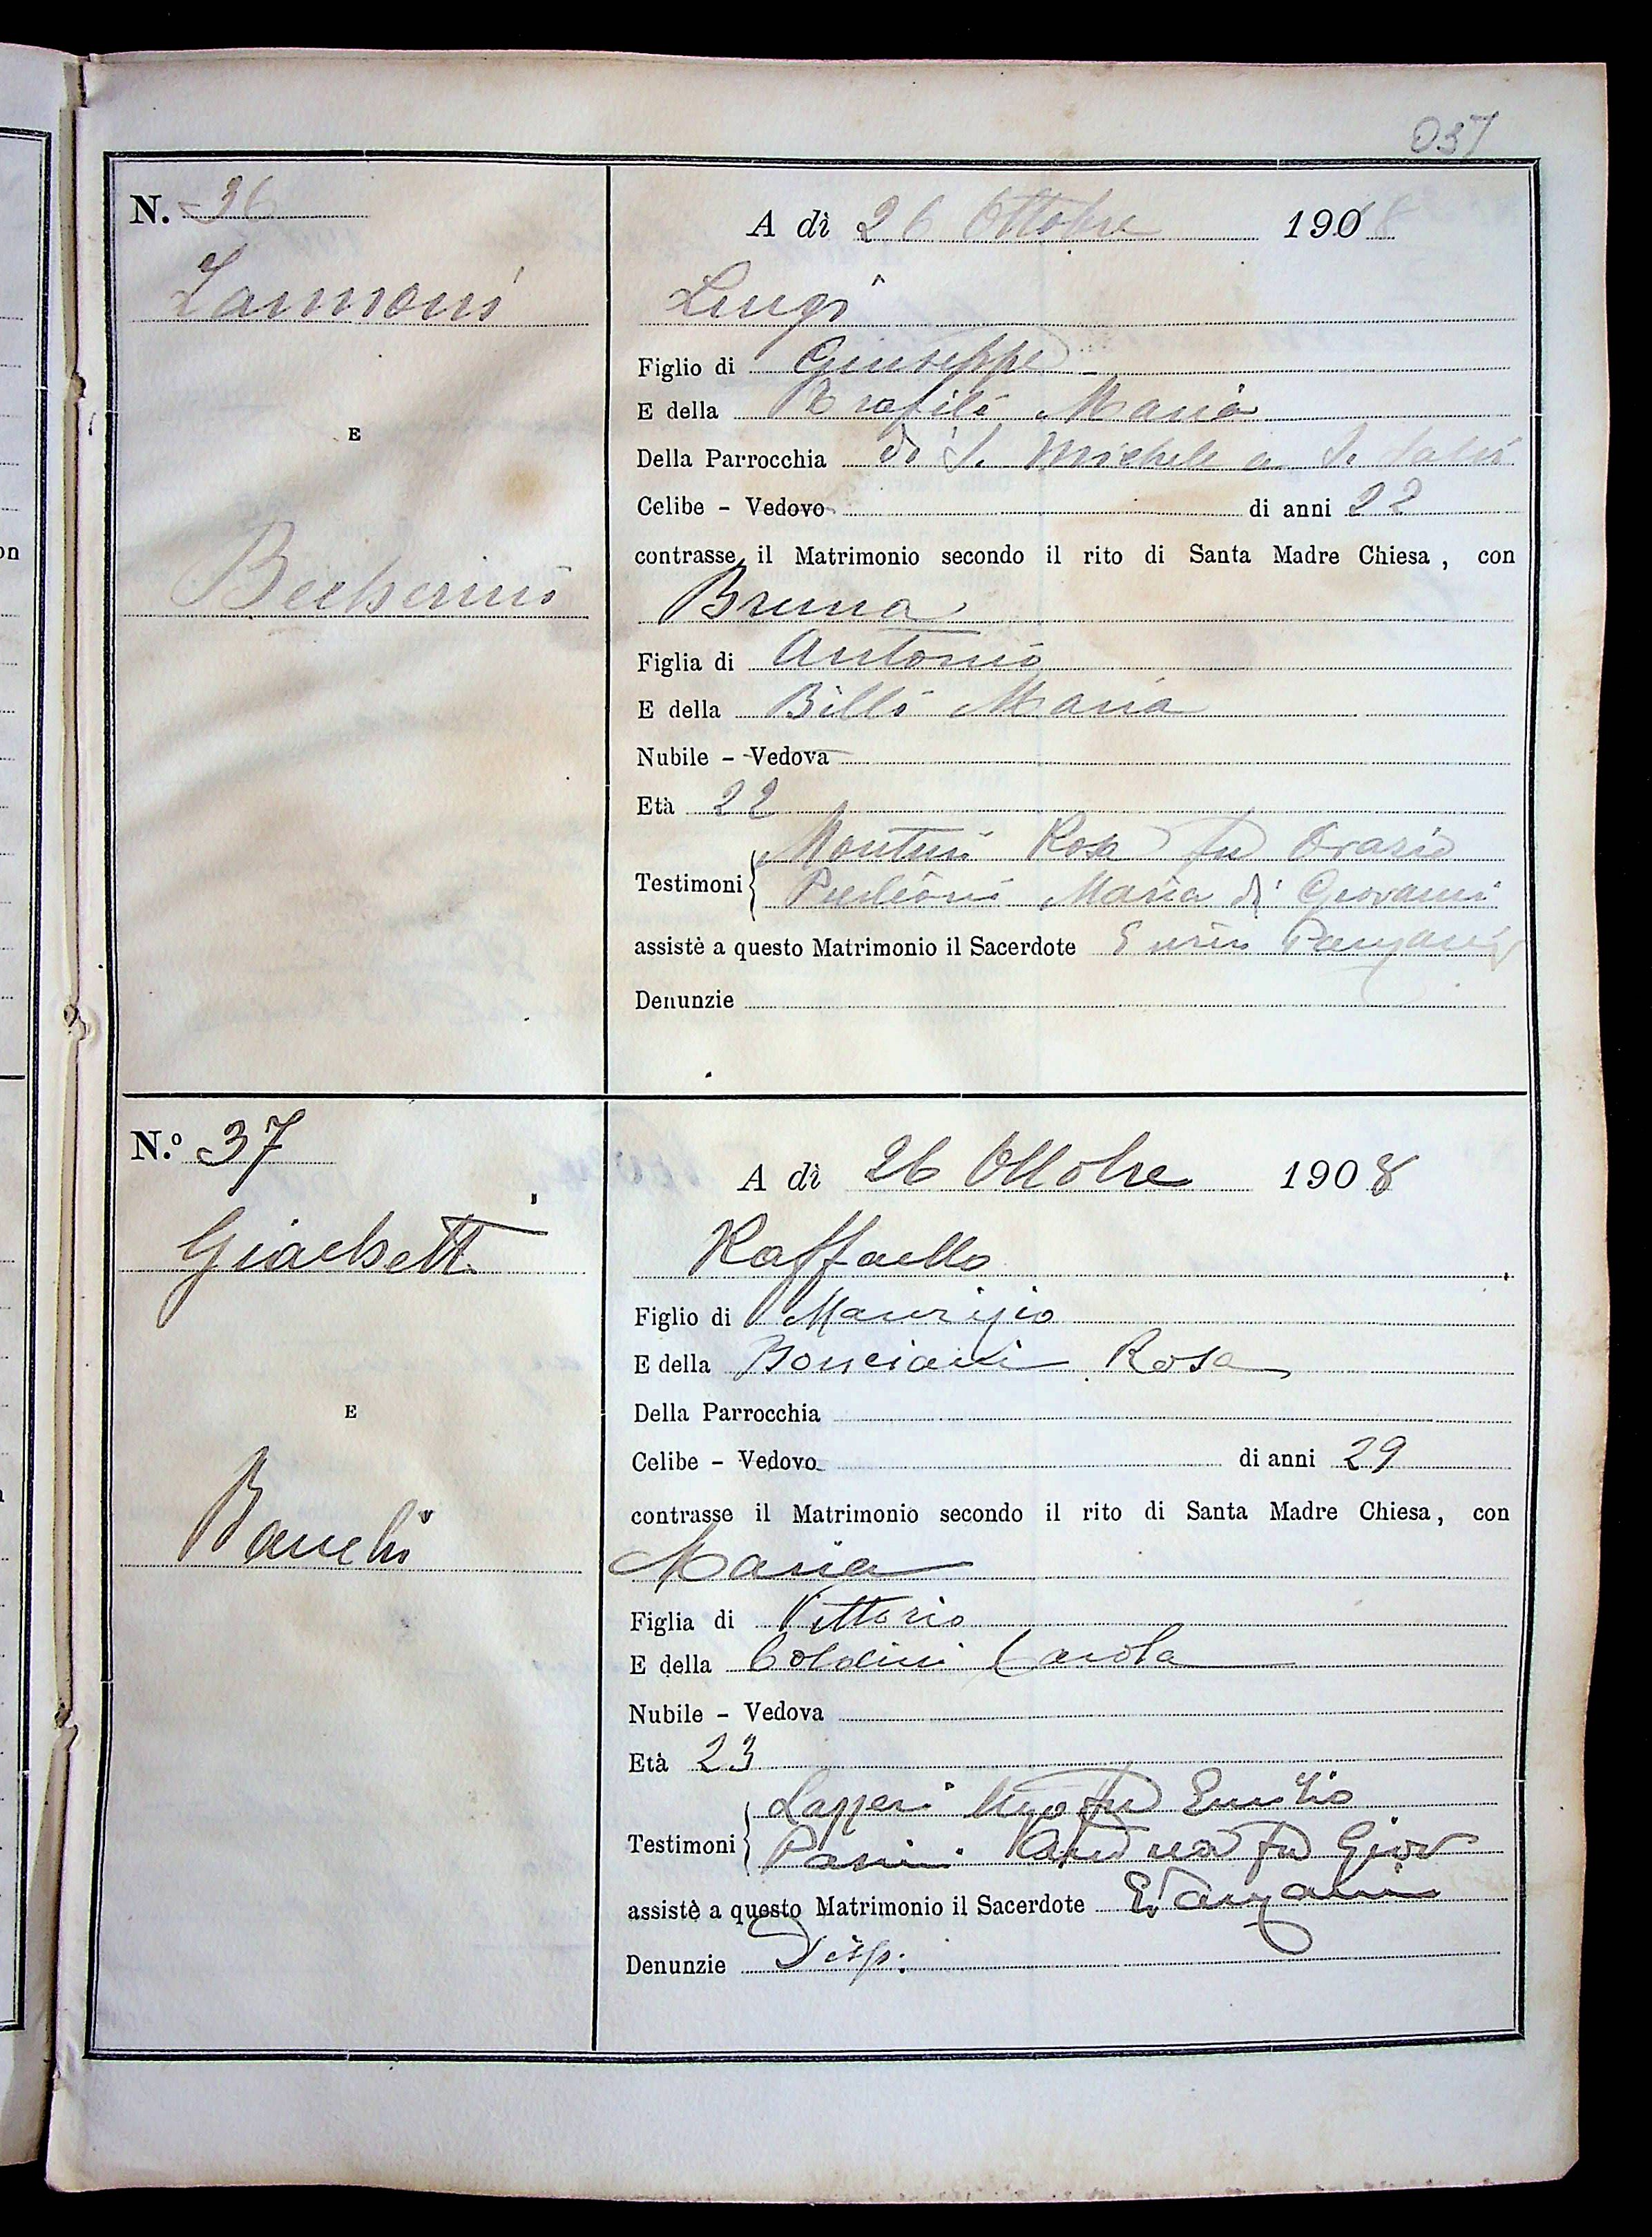 037
N. 36
A dì 26 Ottobre 1908
Zannoni
Luigi
Figlio di Giuseppe
E della Maria
E
Della Parrocchia di S. Michele a S. Salvi
Celibe - Vedovo di anni 22
contrasse il Matrimonio secondo il rito di Santa Madre Chiesa, con
Becherini
Bruna
Figlia di Antonio
E della Billi Maria
Nubile - Vedova
Età 22
Rosa fu Orazio
Testimoni
Maria di Giovanni
assistè a questo Matrimonio il Sacerdote Panzani
Denunzie
N.º 37
A dì 26 Ottobre 1908
Giachetti
Raffaello
Figlio di Maurizio
E della Bonciani Rosa
E
Della Parrocchia
Celibe - Vedovo di anni 29
contrasse il Matrimonio secondo il rito di Santa Madre Chiesa, con
Banchi
Maria
Figlia di Vittorio
E della Carola
Nubile - Vedova
Età 23
fu Emilio
Testimoni
fu Giov
assistè a questo Matrimonio il Sacerdote E. Panzani
Denunzie Disp.
on